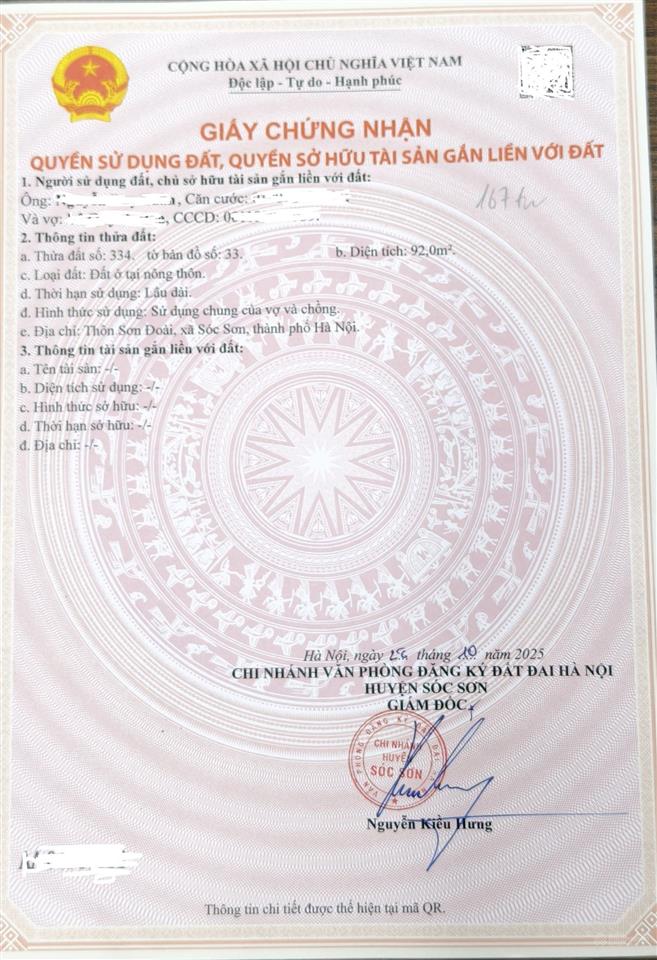 CỘNG HÒA XÃ HỘI CHỦ NGHĨA VIỆT NAM
Độc lập - Tự do - Hạnh phúc
GIẤY CHỨNG NHẬN
QUYỀN SỬ DỤNG ĐẤT, QUYỀN SỞ HỮU TÀI SẢN GẮN LIỀN VỚI ĐẤT
1. Người sử dụng đất, chủ sở hữu tài sản gắn liền với đất:
Ông: , Căn cước:
Và vợ: , CCCD:
2. Thông tin thửa đất:
a. Thửa đất số: 334. tờ bản đồ số: 33. b. Diện tích: 92,0m².
c. Loại đất: Đất ở tại nông thôn.
d. Thời hạn sử dụng: Lâu dài.
đ. Hình thức sử dụng: Sử dụng chung của vợ và chồng.
e. Địa chỉ: Thôn Sơn Đoài, xã Sóc Sơn, thành phố Hà Nội.
3. Thông tin tài sản gắn liền với đất:
a. Tên tài sản: -/-
b. Diện tích sử dụng: -/-
c. Hình thức sở hữu: -/-
d. Thời hạn sở hữu: -/-
đ. Địa chỉ: -/-
Hà Nội, ngày tháng 10 năm 2025
CHI NHÁNH VĂN PHÒNG ĐĂNG KÝ ĐẤT ĐAI HÀ NỘI
HUYỆN SÓC SƠN
GIÁM ĐỐC
VĂN PHÒNG ĐĂNG KÝ ĐẤT ĐAI
CHI NHÁNH
HUYỆN
SÓC SƠN
Nguyễn Kiều Hưng
Thông tin chi tiết được thể hiện tại mã QR.